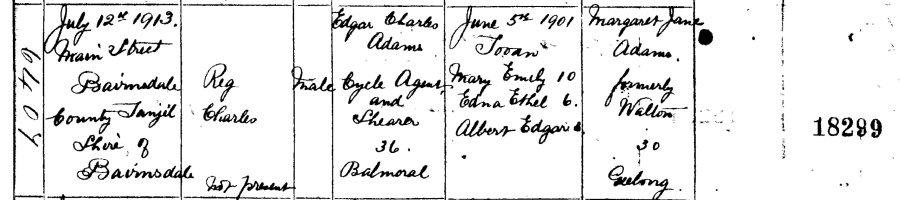 6407
July 12th 1913.
Main Street
Bairnsdale
County Tanjil
Shire of
Bairnsdale
Reg
Charles
not present
Male
Edgar Charles
Adams
Cycle Agent
and
Shearer
36.
Balmoral
June 5th 1901
Tooan
Mary Emily 10
Edna Ethel 6.
Albert Edgar
Margaret Jane
Adams.
formerly
Walton
30
Geelong.
18299